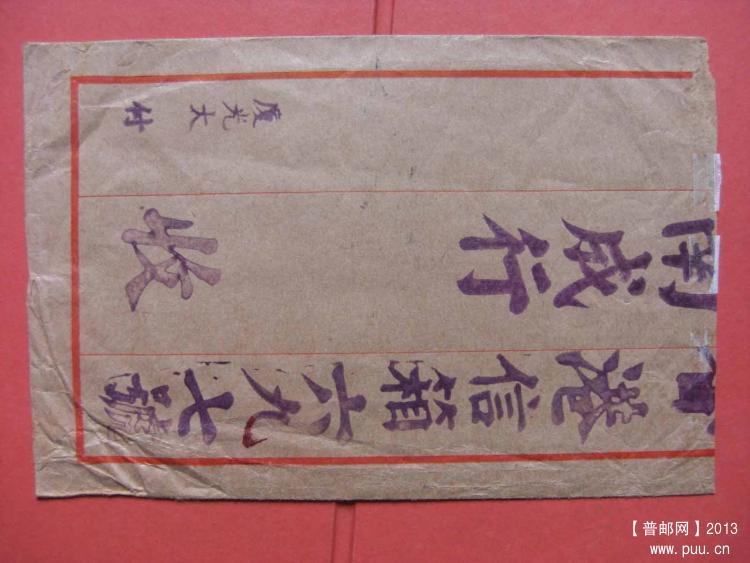 香港信箱六九七號
開成行 收
廈光大 付
【普邮网】2013
www.puu.cn